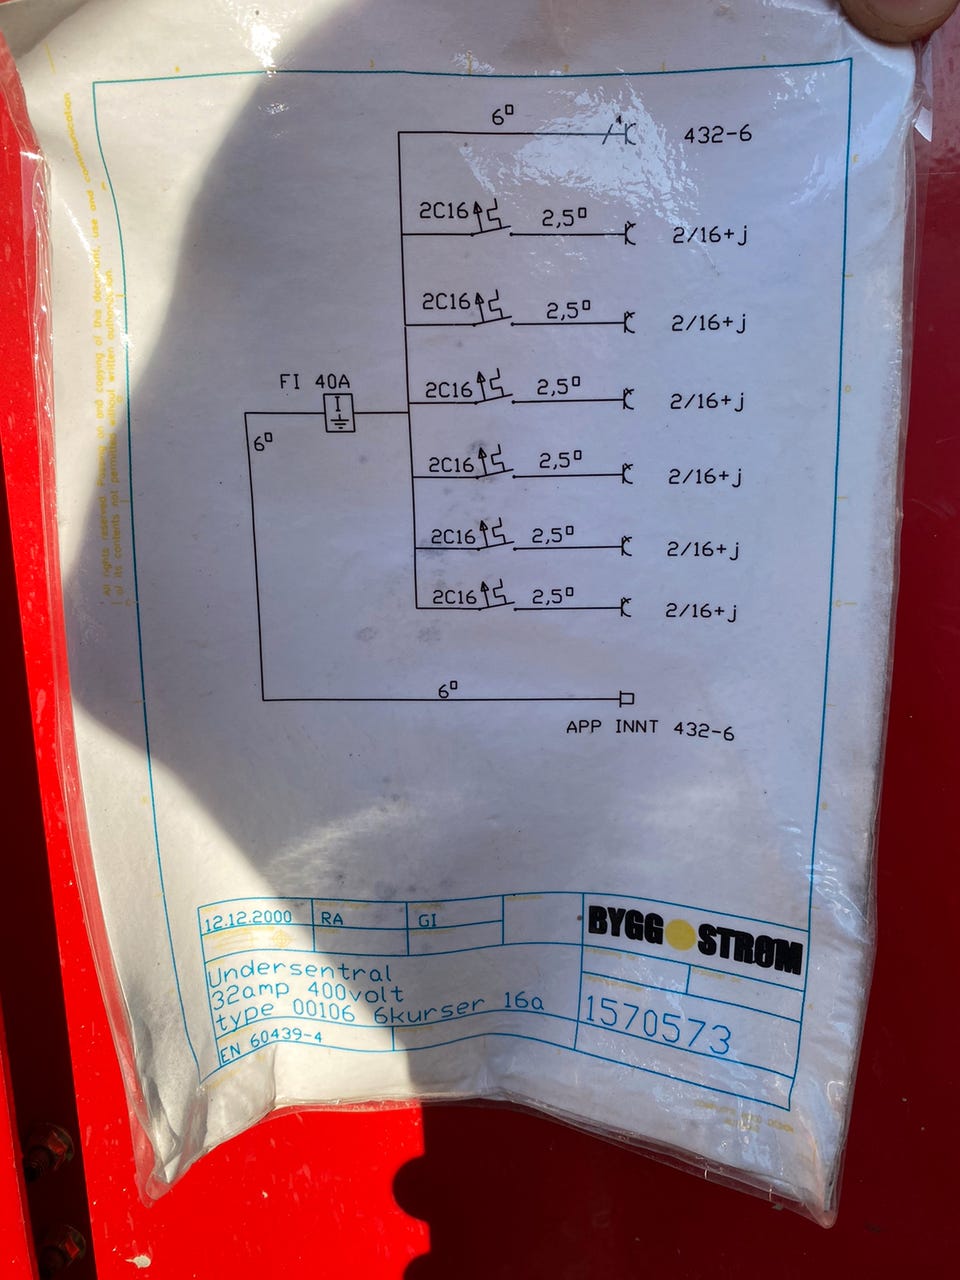 6□
432-6
2C16
2,5□
2/16+j
2C16
2,5□
2/16+j
FI 40A
I
2C16
2,5□
2/16+j
6□
2C16
2,5□
2/16+j
2C16
2,5□
2/16+j
2C16
2,5□
2/16+j
6□
APP INNT 432-6
All rights reserved. Passing on and copying of this document, use and communication
of its contents not permitted without written authorization.
12.12.2000 RA GI
BYGG STRØM
Undersentral
32amp 400volt
type 00106 6kurser 16a
1570573
EN 60439-4